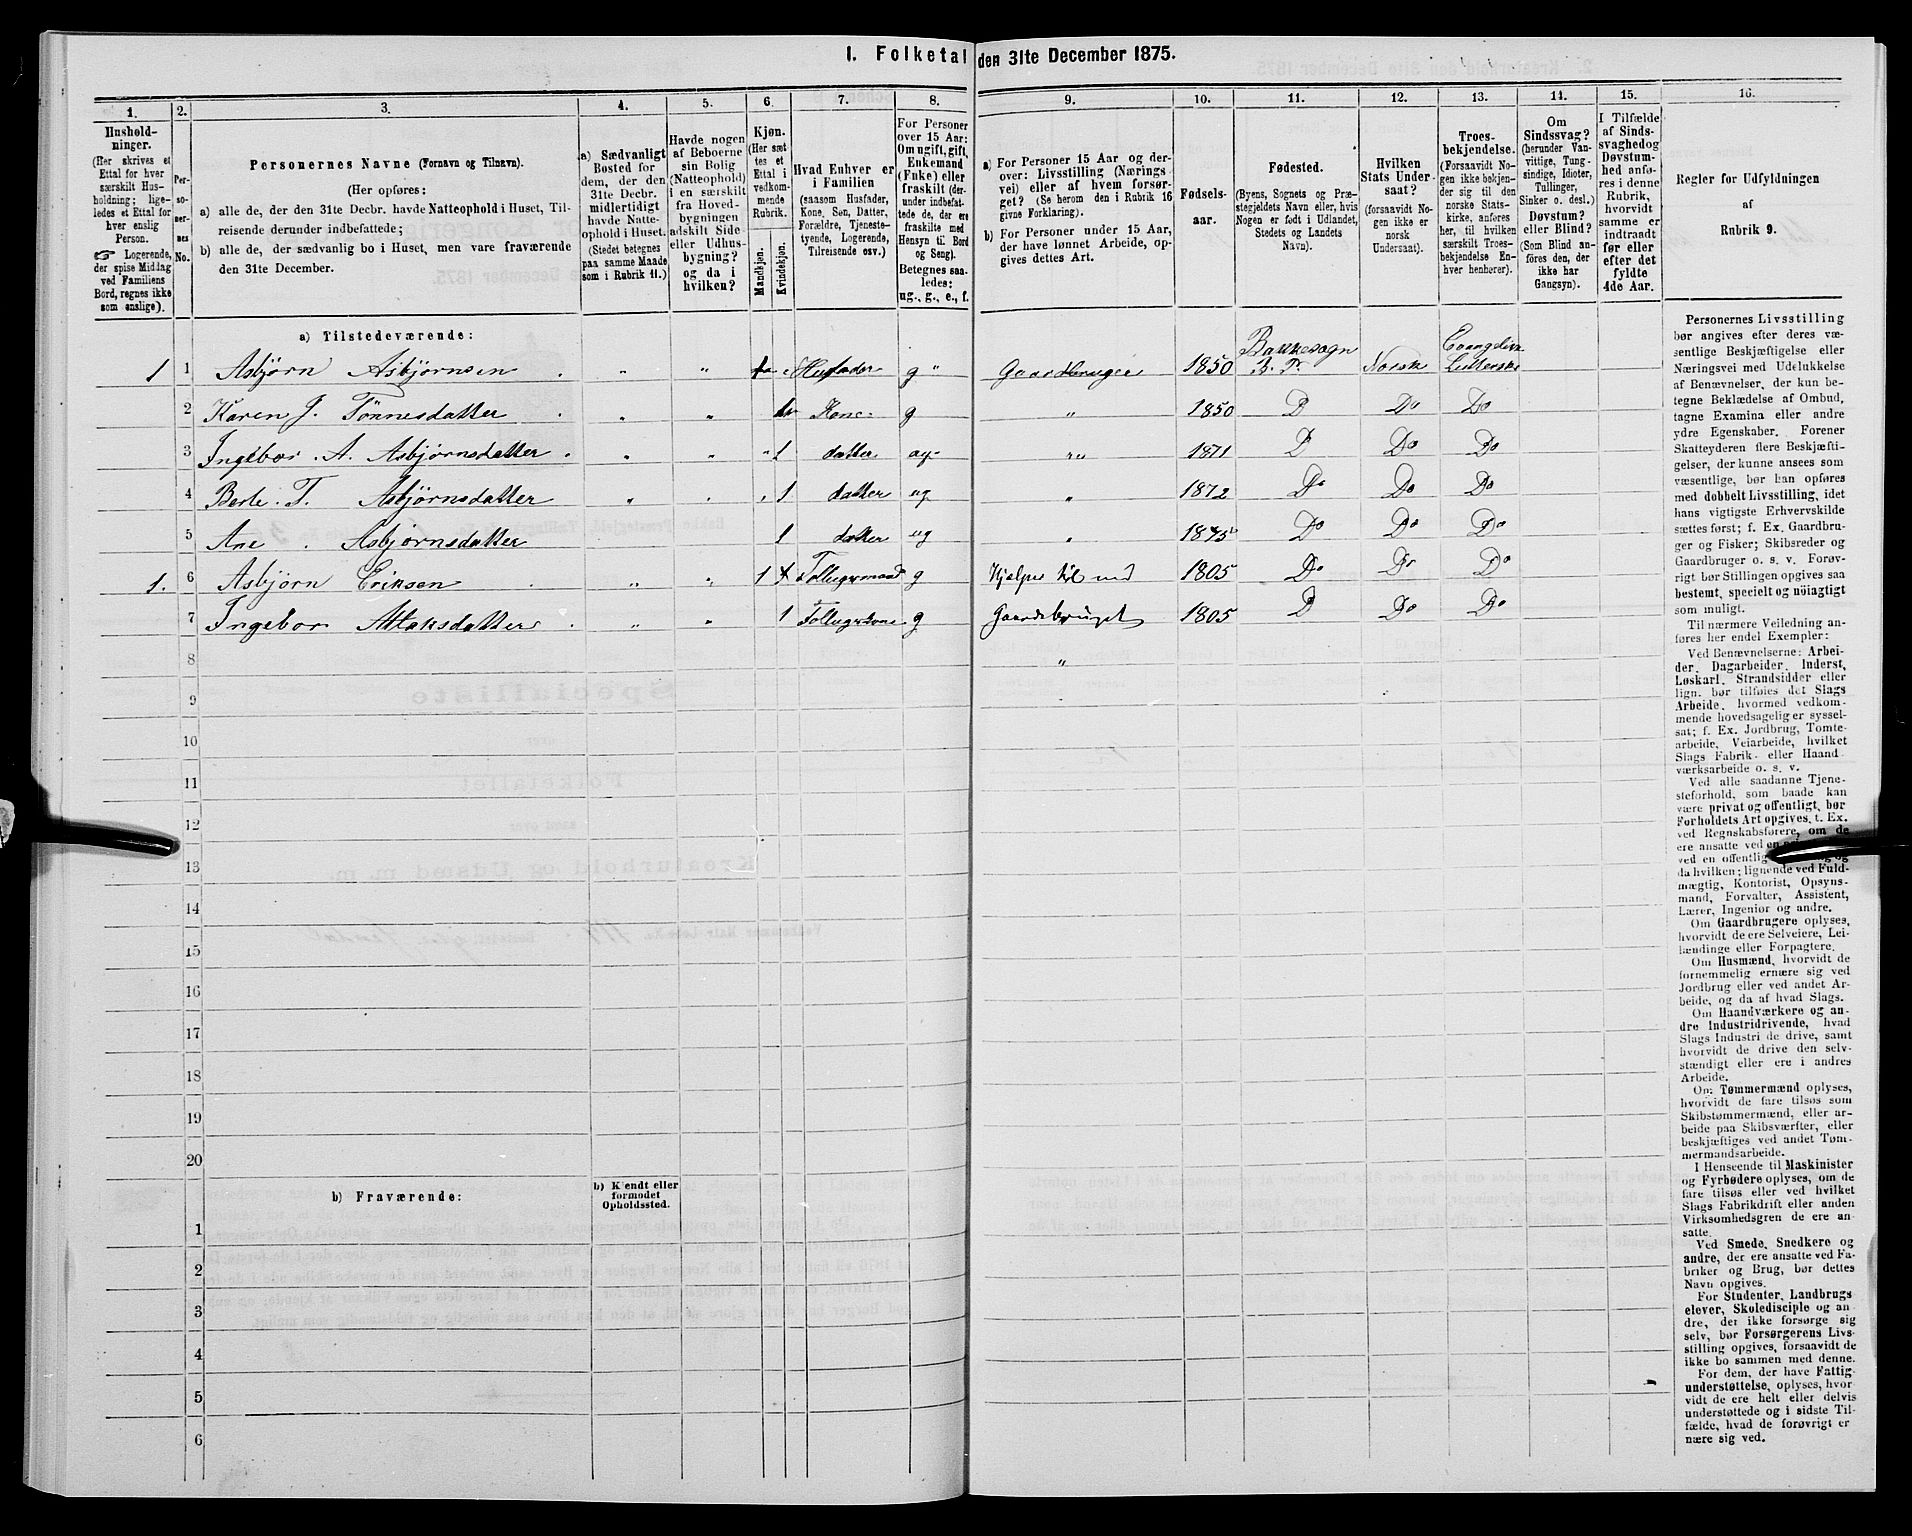 I. Folketal den 31te December 1875.
1. 2. 3. 4. 5. 6. 7. 8. 9. 10. 11. 12. 13. 14. 15. 16.
Hushold-
ninger.
(Her skrives et
Ettal for hver
særskilt Hus-
holdning; lige-
ledes et Ettal for
hver enslig
Person.
☞ Logerende,
der spise Middag
ved Familiens
Bord, regnes ikke
som enslige).
Per-
so-
ner-
nes
No.
Personernes Navne (Fornavn og Tilnavn).
(Her opføres:
a) alle de, der den 31te Decbr. havde Natteophold i Huset, Til-
reisende derunder indbefattede;
b) alle de, der sædvanlig bo i Huset, men vare fraværende
den 31te December.
a) Sædvanligt
Bosted for
dem, der den
31te Decbr.
midlertidigt
havde Natte-
ophold i Huset.
(Stedet betegnes
paa samme Maade
som i Rubrik 11.)
Havde nogen
af Beboerne
sin Bolig
(Natteophold)
i en særskilt
fra Hoved-
bygningen
adskilt Side
eller Udhus-
bygning?
og da i
hvilken?
Kjøn.
(Her sæt-
tes et
Ettal i
vedkom-
mende
Rubrik.
Mandkjøn.
Kvindekjøn.
Hvad Enhver er
i Familien
(saasom Husfader,
Kone, Søn, Datter,
Forældre, Tjeneste-
tyende, Logerende,
Tilreisende osv.)
For Personer
over 15 Aar:
Om ugift, gift,
Enkemand
(Enke) eller
fraskilt (der-
under indbefat-
tede de, der ere
fraskilte med
Hensyn til Bord
og Seng).
Betegnes saa-
ledes:
ug., g., e., f.
a) For Personer 15 Aar og der-
over: Livsstilling (Nærings-
vei) eller af hvem forsør-
get? (Se herom den i Rubrik 16
givne Forklaring).
b) For Personer under 15 Aar,
der have lønnet Arbeide, op-
gives dettes Art.
Fødsels-
aar.
Fødested.
(Byens, Sognets og Præ-
stegjeldets Navn eller, hvis
Nogen er født i Udlandet,
Stedets og Landets
Navn).
Hvilken
Stats Under-
saat?
(forsaavidt No-
gen ikke er
norsk
Undersaat).
Troes-
bekjendelse.
(Forsaavidt No-
gen ikke bekjen-
der sig til den
norske Stats-
kirke, anføres
her, til hvilken
særskilt Troes-
bekjendelse En-
hver henhører).
Om
Sindssvag?
(herunder Van-
vittige, Tung-
sindige, Idioter,
Tullinger,
Sinker o. desl.)
Døvstum?
eller Blind?
(Som Blind an-
føres den, der
ikke har
Gangsyn).
I Tilfælde
af Sinds-
svaghed og
Døvstum-
hed anfø-
res i denne
Rubrik,
hvorvidt
samme er
indtraadt
før eller
efter det
fyldte
4de Aar.
Regler for Udfyldningen
af
Rubrik 9.
a) Tilstedeværende:
1 1 Asbjørn Asbjørnsen " " Husfader g " Gaardbruger 1850 Bakkesogn B. P. Norsk Evangelisk Lutherske
2 Karen J. Tønnesdatter " " 1 Kone g " 1850 D Do Do
3 Ingebor A. Asbjørnsdatter " " " 1 datter " 1871 D Do Do
4 Berte T. Asbjørnsdatter " " " 1 datter ug " 1872 Do Do Do
5 Ane Asbjørnsdatter 1 datter ug " 1875 Do Do Do
1. 6 Asbjørn Eriksen " " 1 g Hjelper til med 1805 Do Do Do
7 Ingebor " " 1 g Gaardsbruget 1805 D Do Do
8 "
9
10
11
12
13
14
15
16
17
18
19
20
b) Fraværende:
b) Kjendt eller
formodet
Opholdssted.
1
2
3
4
5
6
Personernes Livsstilling
bør angives efter deres væ-
sentlige Beskjæftigelse eller
Næringsvei med Udelukkelse
af Benævnelser, der kun be-
tegne Beklædelse af Ombud,
tagne Examina eller andre
ydre Egenskaber. Forener
Skatteyderen flere Beskjæfti-
gelser, der kunne ansees som
væsentlige, bør han opgives
med dobbelt Livsstilling, idet
hans vigtigste Erhvervskilde
sættes først; f. Ex. Gaardbru-
ger og Fisker; Skibsreder og
Gaardbruger o. s. v. Forøv-
rigt bør Stillingen opgives saa
bestemt, specielt og nøiagtigt
som muligt.
Til nærmere Veiledning an-
føres her endel Exempler:
Ved Benævnelserne: Arbei-
der, Dagarbeider, Inderst,
Løskarl, Strandsidder eller
lign. bør tilføies det Slags
Arbeide, hvormed vedkom-
mende hovedsagelig er syssel-
sat; f. Ex. Jordbrug, Tomte-
arbeide, Veiarbeide, hvilket
Slags Fabrik- eller Haand-
værksarbeide o. s. v.
Ved alle saadanne Tjene-
steforhold, som baade kan
være privat og offentligt, bør
Forholdets Art opgives, t. Ex.
ved Regnskabsførere, om de
ere ansatte ved en
ved en offentlig
da hvilken; lignende ved Fuld-
mægtig, Kontorist, Opsyns-
mand, Forvalter, Assistent,
Lærer, Ingeniør og andre.
Om Gaardbrugere oplyses,
hvorvidt de ere Selveiere, Lei-
lændinge eller Forpagtere.
Om Husmænd, hvorvidt de
fornemmelig ernære sig ved
Jordbrug eller ved andet Ar-
beide, og da af hvad Slags.
Om Haandværkere og an-
dre Industridrivende, hvad
Slags Industri de drive, samt
hvorvidt de drive den selv-
stændigt eller ere i andres
Arbeide.
Om Tømmermænd oplyses,
hvorvidt de fare tilsøs som
Skibstømmermænd, eller ar-
beide paa Skibsværfter, eller
beskjæftiges ved andet Tøm-
mermandsarbeide.
I Henseende til Maskinister
og Fyrbødere oplyses, om de
fare tilsøs eller ved hvilket
Slags Fabrikdrift eller anden
Virksomhedsgren de ere an-
satte.
Ved Smede, Snedkere og
andre, der ere ansatte ved Fa-
briker og Brug, bør dettes
Navn opgives.
For Studenter, Landbrugs-
elever, Skoledisciple og an-
dre, der ikke forsørge sig
selv, bør Forsørgerens Livs-
stilling opgives, forsaavidt de
ikke bo sammen med denne.
For dem, der have Fattig-
understøttelse, oplyses, hvor-
vidt de ere helt eller delvis
understøttede og i sidste Til-
fælde, hvad de forøvrigt er-
nære sig ved.